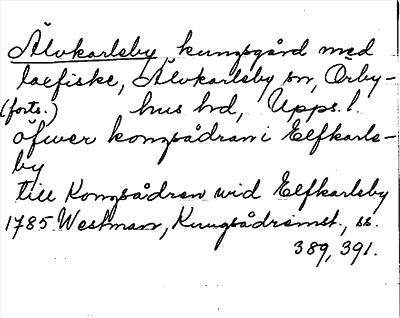 Älvkarleby, kungsgård med
laxfiske, Älvkarleby sn, Örby-
(forts.) hus hd, Upps. l.
öfwer kongsådran i Elfkarle-
by
till Kongsådran wid Elfkarleby
1785 Westman, Kungsådremst., ss.
389, 391.